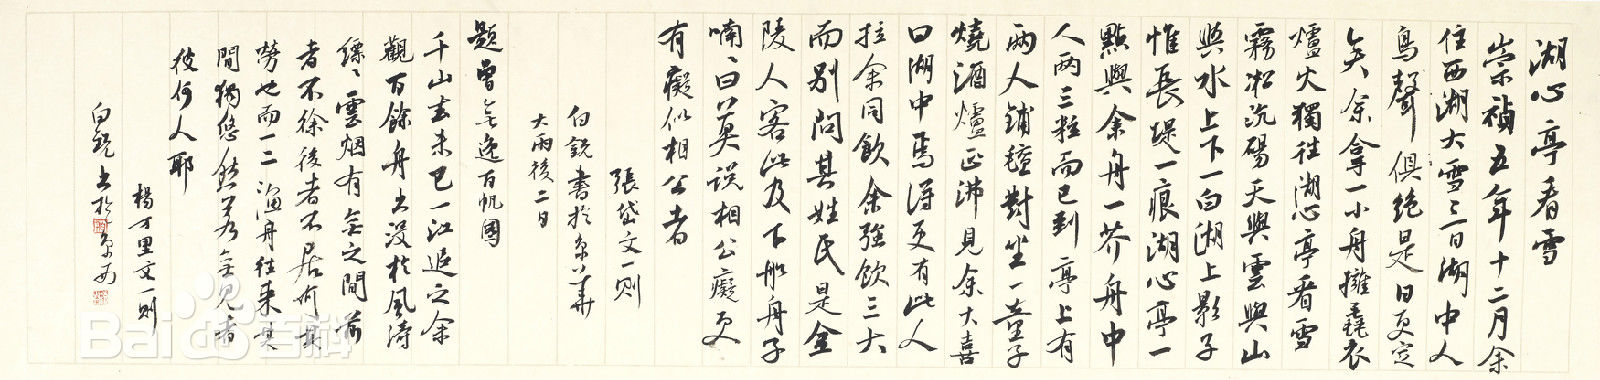 湖心亭看雪
崇禎五年十二月余
住西湖大雪三日湖中人
鳥聲俱絕是日更定
矣余拿一小舟擁毳衣
爐火獨往湖心亭看雪
霧凇沆碭天與雲與山
與水上下一白湖上影子
惟長堤一痕湖心亭一
點與余舟一芥舟中
人兩三粒而已到亭上有
兩人鋪氈對坐一童子
燒酒爐正沸見余大喜
曰湖中焉得更有此人
拉余同飲余強飲三大
而別問其姓氏是金
陵人客此及下船舟子
喃、曰莫說相公癡更
有癡似相公者
張岱文一則
白銳書於京華
大雨後二日
題曾無逸百帆圖
千山去未已一江追之余
觀百餘舟出沒於風濤
縹、雲烟有無之間前
者不徐後者不居何其
勞也而一二漁舟往來其
間獨悠然若無見者
彼何人耶
楊万里文一則
白銳書於京西
Baidu百科